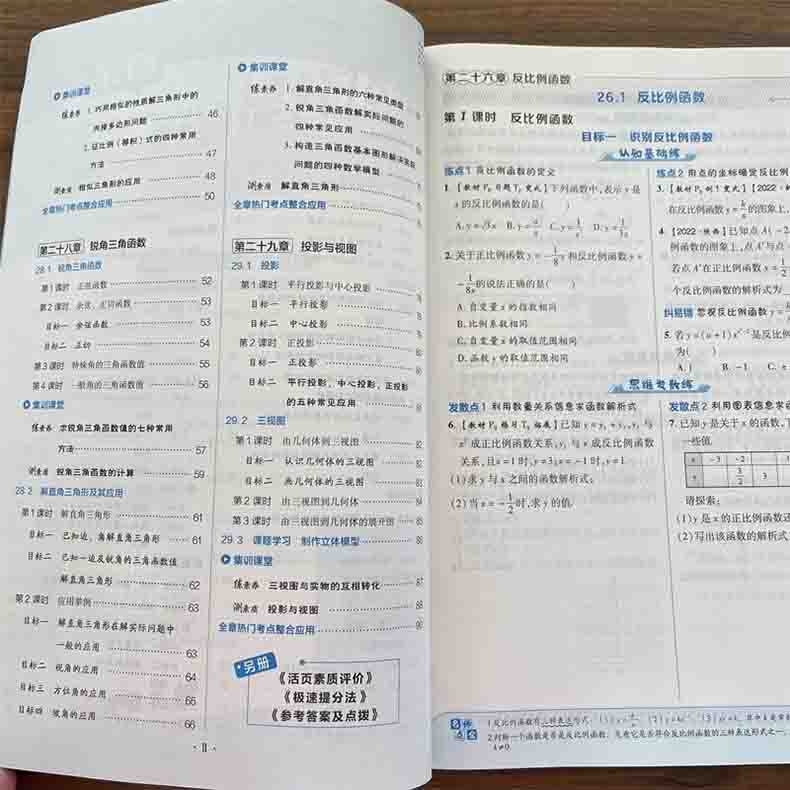 集训课堂
练素养 1. 巧用相似的性质解三角形中的
内接多边形问题 46
2. 证比例(等积)式的四种常用
方法 47
测素质 相似三角形的应用 48
全章热门考点整合应用 50
第二十八章 锐角三角函数
28.1 锐角三角函数
第1课时 正弦函数 52
第2课时 余弦、正切函数 53
目标一 余弦函数 53
目标二 正切 54
第3课时 特殊角的三角函数值 55
第4课时 一般角的三角函数值 56
集训课堂
练素养 求锐角三角函数值的七种常用
方法 57
测素质 锐角三角函数的计算 59
28.2 解直角三角形及其应用
第1课时 解直角三角形 61
目标一 已知边、角解直角三角形 61
目标二 已知一边及锐角的三角函数值
解直角三角形 62
第2课时 应用举例 63
目标一 解直角三角形在解实际问题中
一般的应用 63
目标二 视角的应用 64
目标三 方位角的应用 65
目标四 坡角的应用 66
· Ⅱ ·
集训课堂
练素养 1. 解直角三角形的六种常见类型
2. 锐角三角函数解实际问题的
四种常见应用
3. 构造三角函数基本图形解决实际
问题的四种数学模型
测素质 解直角三角形
全章热门考点整合应用
第二十九章 投影与视图
29.1 投影
第1课时 平行投影与中心投影
目标一 平行投影
目标二 中心投影
第2课时 正投影
目标一 正投影
目标二 平行投影、中心投影、正投影
的五种常见应用
29.2 三视图
第1课时 由几何体到三视图
目标一 认识几何体的三视图
目标二 画几何体的三视图
第2课时 由三视图到几何体 84
第3课时 由三视图到几何体的展开图 85
29.3 课题学习 制作立体模型 86
集训课堂
练素养 三视图与实物的互相转化 87
测素质 投影与视图 88
全章热门考点整合应用 90
另册
《活页素质评价》
《极速提分法》
《参考答案及点拨》
第二十六章 反比例函数
26.1 反比例函数
第1课时 反比例函数
目标一 识别反比例函数
认知基础练
练点1 反比例函数的定义
1. 【教材P₃习题T₂变式】下列函数中,表示y是
x的反比例函数的是( )
A. y=√3x B. y=a/x C. y=1/x D. y=1/3x
2. 关于正比例函数y=-1/8 x和反比例函数y=
-1/8x的说法正确的是( )
A. 自变量x的指数相同
B. 比例系数相同
C. 自变量x的取值范围相同
D. 函数y的取值范围相同
思维发散练
发散点1 利用数量关系信息求函数解析式
已知y=y₁+y₂,y₁与
成正比例函数关系,y₂与x成反比例函数
关系,且x=1时,y=3;x=-1时,y=1.
(1)求y与x之间的函数解析式;
(2)当x=-1/2时,求y的值.
练点2 用点的坐标确定反比例
3. 【教材P₃例1变式】【2022·
在反比例函数y=k/x的图象上,
4. 【2022·陕西】已知点A(-2
例函数的图象上,点A'与点
若点A'在正比例函数y=1/2
个反比例函数的解析式为
纠易错 忽视反比例函数y=
5. 若y=(a+1)
是反比例
为( )
A. 1 B. -1
发散点2 利用图表信息求函
7. 已知y是关于x的函数,下
一些值.
x -3 -2
y 3/2 3
请探索:
(1)y是x的正比例函数还
(2)写出该函数的解析式
名师点金
1.反比例函数有三种表达形式:
2.判断一个函数是否是反比例函数,先看它是否符合反比例函数的三种表达形式之一,
k≠0.